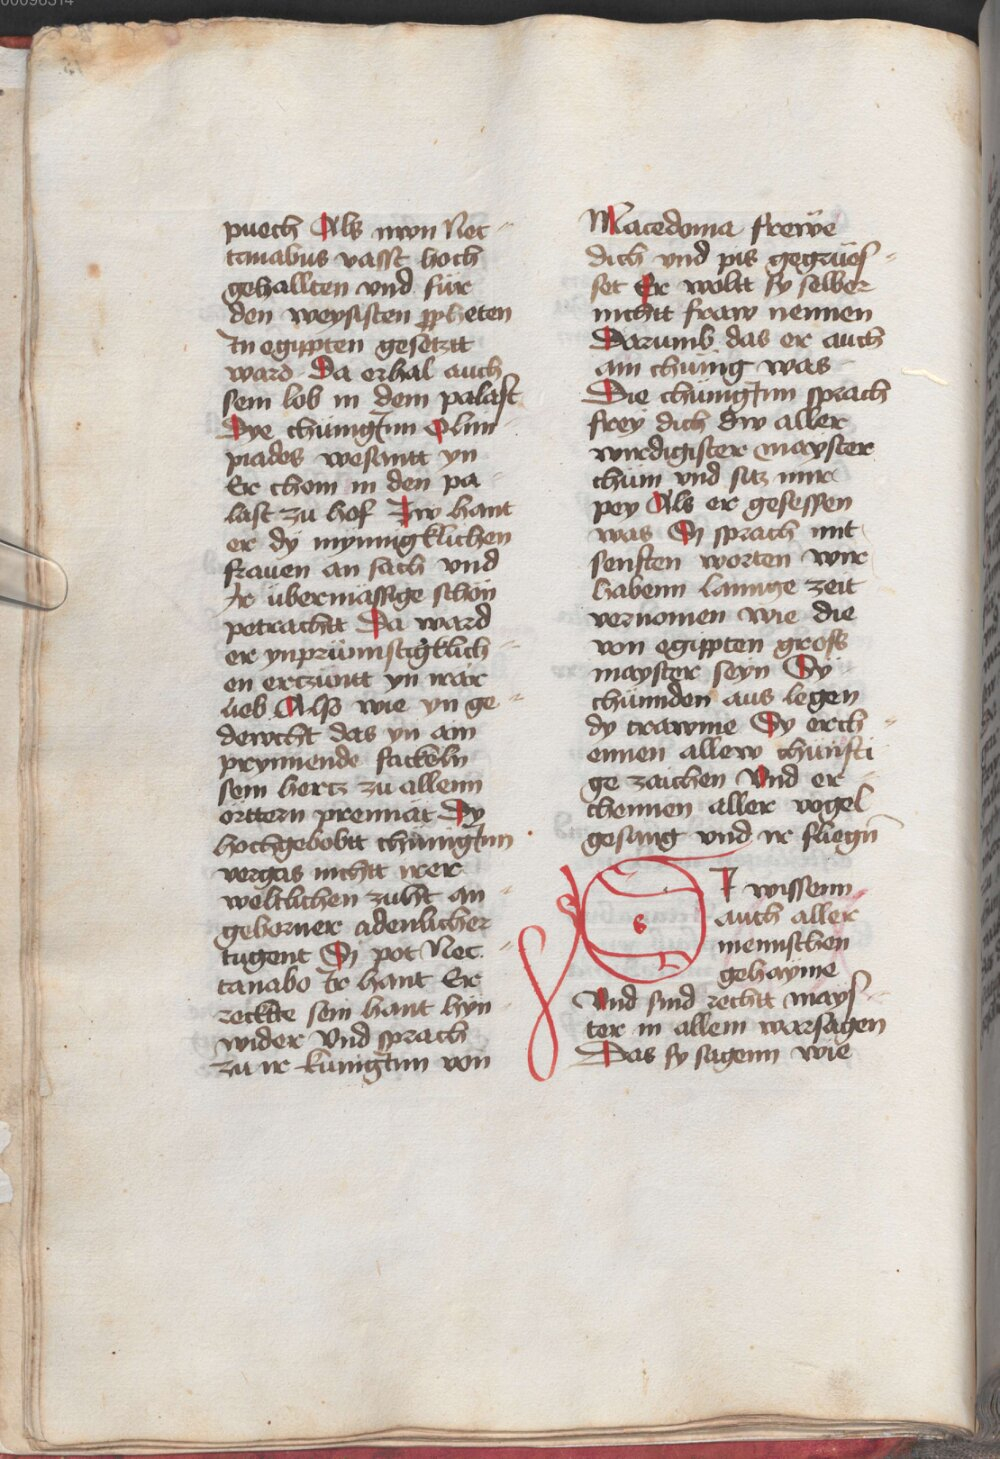 puech Als nwn Nec-
tanabus vasst hoch
gehallten vnd für
den weysisten ppheten
In egippten gesetztt
ward Da erhal auch
sein lob in dem palast
Dye chünigInn Olim
piades wesantt yn
Er chom in den pa-
last zu hof Zw hant
er dy mynnigklichen
frauen an sach vnd
Ir übermässige schön
petrachtt Da ward
er ynprünnstigklich-
en erczüntt yn irär
lieb Alss wie yn ge-
dewcht das yn ain
prynnende fackeln
sein hertz zu allenn
örttern prennät Dy
hochgelobtt chünigInn
vergas nichtt irer
weltlichen zuht an
geborner adenlicher
tugent Sy pot Nec-
tanabo Ir hant Er
reckkte sein hant hyn
wider Vnd sprach
zu ir kunigInn von
Macedonia frewe
dich vnd pis gegrües-
set Er woltt sy selber
nichtt fraw nennen
Darumb das er auch
ain chünig was
Die chünigInn sprach
frey dich dw aller
wirdigister mayster
chüm vnd sitz mir
pey Als er gesessen
was Sy sprach mit
senften worten wir
habenn lannge zeit
vernomen wie die
von egippten gross
mayster seyn Dy
chünnden aus legen
dy trawme Dy erch-
ennen allew chünfti
ge zaichen Vnd er
chennen aller vogel
gesang vnd ir fliegn
SI wissenn
auch aller
mennschen
gehayme
Vnd sind rechtt mays-
ter in allem warsagen
Das sy sagenn wie